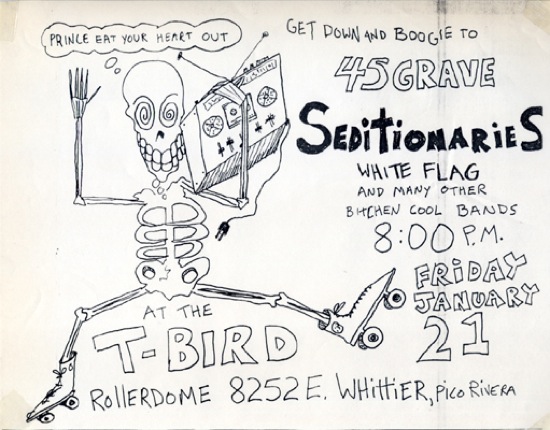 PRINCE EAT YOUR HEART OUT
GET DOWN AND BOOGIE TO
45 GRAVE
SEDITIONARIES
WHITE FLAG
AND MANY OTHER
BITCHEN COOL BANDS
8:00 P.M.
FRIDAY
JANUARY
21
AT THE
T-BIRD
ROLLERDOME 8252 E. WHITTIER, PICO RIVERA